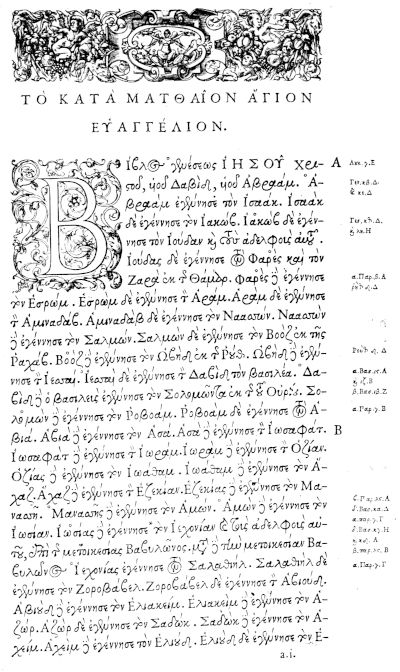 ΤῸ ΚΑΤᾺ ΜΑΤΘΑΙ͂ΟΝ ἍΓΙΟΝ
ΕΥ̓ΑΓΓΈΛΙΟΝ.
Βίβλος γενέσεως ἸΗΣΟΥ͂ χρι- A
Λυκ. γ. Ε
στοῦ, υἱοῦ Δαβὶδ, υἱοῦ Ἀβραάμ. Ἀ-
βραὰμ ἐγέννησε τὸν Ἰσαάκ. Ἰσαὰκ
δὲ ἐγέννησε τὸν Ἰακώβ. Ἰακὼβ δὲ ἐγέν-
νησε τὸν Ἰούδαν καὶ τοὺς ἀδελφοὺς αὐτοῦ.
Ἰούδας δὲ ἐγέννησε τὸν Φαρὲς καὶ τὸν
Ζαρὰ ἐκ τῆς Θάμαρ. Φαρὲς δὲ ἐγέννησε
τὸν Ἐσρώμ. Ἐσρὼμ δὲ ἐγέννησε τὸν Ἀράμ. Ἀρὰμ δὲ ἐγέννησε
τὸν Ἀμιναδάβ. Ἀμιναδὰβ δὲ ἐγέννησε τὸν Ναασσών. Ναασσὼν
δὲ ἐγέννησε τὸν Σαλμών. Σαλμὼν δὲ ἐγέννησε τὸν Βοὸζ ἐκ τῆς
Ῥαχάβ. Βοὸζ δὲ ἐγέννησε τὸν Ὠβὴδ ἐκ τῆς Ῥούθ. Ὠβὴδ δὲ ἐγέν-
νησε τὸν Ἰεσσαί. Ἰεσσαὶ δὲ ἐγέννησε τὸν Δαβὶδ τὸν βασιλέα. Δα-
βὶδ δὲ ὁ βασιλεὺς ἐγέννησε τὸν Σολομῶντα ἐκ τῆς τοῦ Οὐρίου. Σο-
λομὼν δὲ ἐγέννησε τὸν Ῥοβοάμ. Ῥοβοὰμ δὲ ἐγέννησε τὸν Ἀ-
βιά. Ἀβιὰ δὲ ἐγέννησε τὸν Ἀσά. Ἀσὰ δὲ ἐγέννησε τὸν Ἰωσαφάτ. B
Ἰωσαφὰτ δὲ ἐγέννησε τὸν Ἰωράμ. Ἰωρὰμ δὲ ἐγέννησε τὸν Ὀζίαν.
Ὀζίας δὲ ἐγέννησε τὸν Ἰωάθαμ. Ἰωάθαμ δὲ ἐγέννησε τὸν Ἄ-
χαζ. Ἄχαζ δὲ ἐγέννησε τὸν Ἐζεκίαν. Ἐζεκίας δὲ ἐγέννησε τὸν Μα-
νασσῆ. Μανασσῆς δὲ ἐγέννησε τὸν Ἀμών. Ἀμὼν δὲ ἐγέννησε τὸν
Ἰωσίαν. Ἰωσίας δὲ ἐγέννησε τὸν Ἰεχονίαν καὶ τοὺς ἀδελφοὺς αὐ-
τοῦ, ἐπὶ τῆς μετοικεσίας Βαβυλῶνος. μετὰ δὲ τὴν μετοικεσίαν Βα-
βυλῶνος Ἰεχονίας ἐγέννησε τὸν Σαλαθιήλ. Σαλαθιὴλ δὲ
ἐγέννησε τὸν Ζοροβάβελ. Ζοροβάβελ δὲ ἐγέννησε τὸν Ἀβιούδ.
Ἀβιοὺδ δὲ ἐγέννησε τὸν Ἐλιακείμ. Ἐλιακεὶμ δὲ ἐγέννησε τὸν Ἀ-
ζώρ. Ἀζὼρ δὲ ἐγέννησε τὸν Σαδώκ. Σαδὼκ δὲ ἐγέννησε τὸν Ἀ-
χείμ. Ἀχεὶμ δὲ ἐγέννησε τὸν Ἐλιούδ. Ἐλιοὺδ δὲ ἐγέννησε τὸν Ἐ-
a.i.